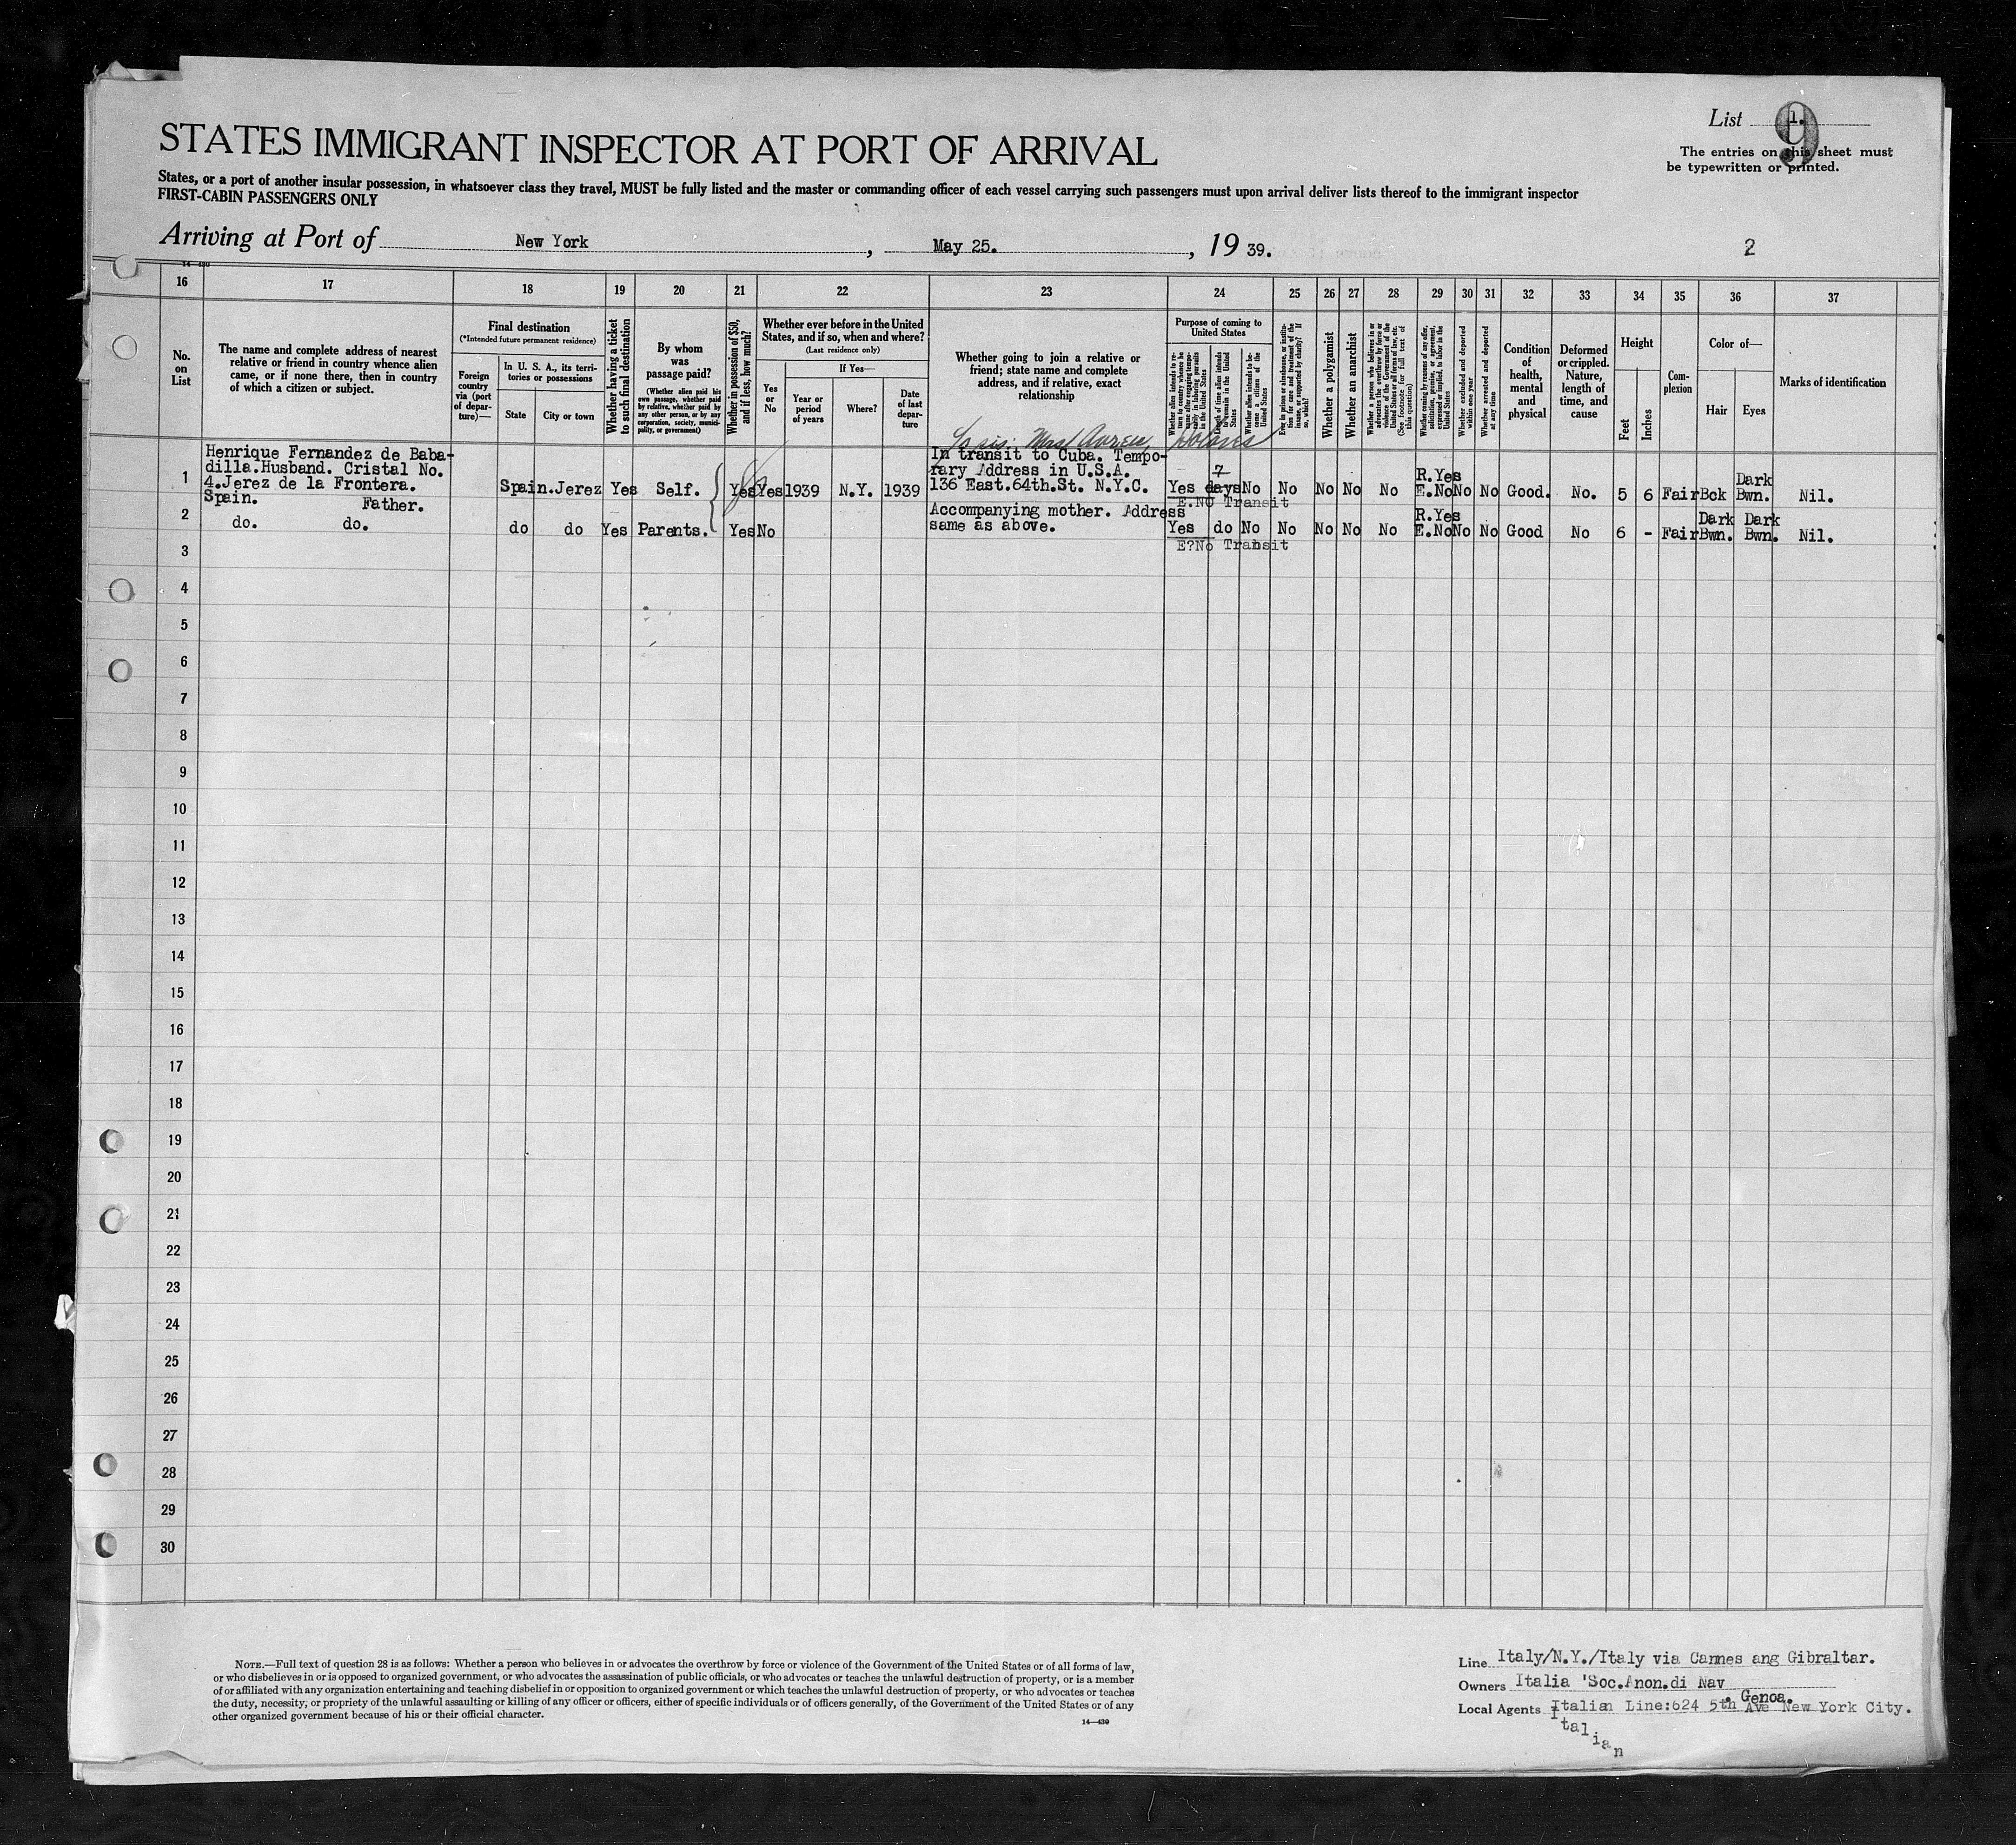 List 1.
9
The entries on this sheet must
be typewritten or printed.
STATES IMMIGRANT INSPECTOR AT PORT OF ARRIVAL
States, or a port of another insular possession, in whatsoever class they travel, MUST be fully listed and the master or commanding officer of each vessel carrying such passengers must upon arrival deliver lists thereof to the immigrant inspector
FIRST-CABIN PASSENGERS ONLY
Arriving at Port of New York, May 25., 19 39.
2
16 17 18 19 20 21 22 23 24 25 26 27 28 29 30 31 32 33 34 35 36 37
No.
on
List
The name and complete address of nearest
relative or friend in country whence alien
came, or if none there, then in country
of which a citizen or subject.
Final destination
(*Intended future permanent residence)
Foreign
country
via (port
of depar-
ture)—
In U. S. A., its terri-
tories or possessions
State
City or town
Whether having a ticket
to such final destination
By whom
was
passage paid?
(Whether alien paid his
own passage, whether paid
by relative, whether paid by
any other person, or by any
corporation, society, munici-
pality, or government)
Whether in possession of $50,
and if less, how much?
Whether ever before in the United
States, and if so, when and where?
(Last residence only)
Yes
or
No
If Yes—
Year or
period
of years
Where?
Date
of last
depar-
ture
Whether going to join a relative or
friend; state name and complete
address, and if relative, exact
relationship
Purpose of coming to
United States
Whether alien intends to re-
turn to country whence he
came after engaging tempo-
rarily in laboring pursuits
in the United States
Length of time alien intends
to remain in the United
States
Whether alien intends to be-
come a citizen of the
United States
Ever in prison or almshouse, or institu-
tion for care and treatment of the
insane, or supported by charity? If
so, which?
Whether a polygamist
Whether an anarchist
Whether a person who believes in or
advocates the overthrow by force or
violence of the Government of the
United States or all forms of law, etc.
(See footnote for full text of
this question)
Whether coming by reasons of any offer,
solicitation, promise, or agreement,
expressed or implied, to labor in the
United States
Whether excluded and deported
within one year
Whether arrested and deported
at any time
Condition
of
health,
mental
and
physical
Deformed
or crippled.
Nature,
length of
time, and
cause
Height
Feet
Inches
Com-
plexion
Color of—
Hair
Eyes
Marks of identification
Mrs Dolores
1
Henrique Fernandez de Baba-
dilla.Husband. Cristal No.
4.Jerez de la Frontera.
Spain. Father.
Spain.Jerez Yes Self. Yes Yes 1939 N.Y. 1939
In transit to Cuba. Tempo-
rary Address in U.S.A.
136 East.64th.St. N.Y.C.
Yes 7 days No No No No No R.Yes E.No No No Good. No. 5 6 Fair Bck Dark Bwn. Nil.
E.NO Transit
2
do. do. do do Yes Parents. Yes No
Accompanying mother. Address
same as above.
Yes do No No No No No R.Yes E.No No No Good No 6 - Fair Dark Bwn. Dark Bwn. Nil.
E?No Transit
3
4
5
6
7
8
9
10
11
12
13
14
15
16
17
18
19
20
21
22
23
24
25
26
27
28
29
30
NOTE.—Full text of question 28 is as follows: Whether a person who believes in or advocates the overthrow by force or violence of the Government of the United States or of all forms of law,
or who disbelieves in or is opposed to organized government, or who advocates the assassination of public officials, or who advocates or teaches the unlawful destruction of property, or is a member
of or affiliated with any organization entertaining and teaching disbelief in or opposition to organized government or which teaches the unlawful destruction of property, or who advocates or teaches
the duty, necessity, or propriety of the unlawful assaulting or killing of any officer or officers, either of specific individuals or of officers generally, of the Government of the United States or of any
other organized government because of his or their official character.
14—430
Line Italy/N.Y./Italy via Cannes ang Gibraltar.
Owners Italia 'Soc.Anon.di Nav. Genoa.
Local Agents Italian Line:624 5th Ave New York City.
Italian